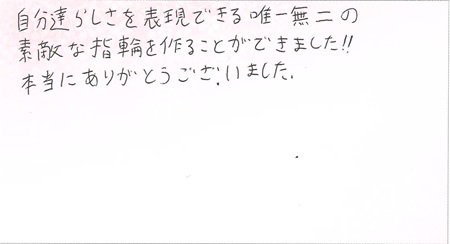 自分達らしさを表現できる唯一無二の
素敵な指輪を作ることができました!!
本当にありがとうございました.